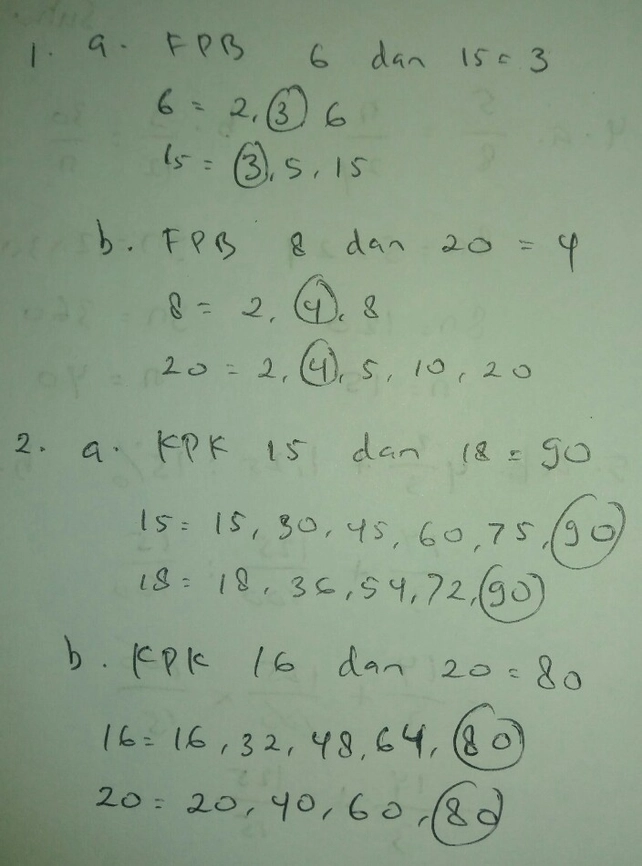 1. a. FPB 6 dan 15 = 3
6 = 2, 3 6
15 = 3, 5, 15
b. FPB 8 dan 20 = 4
8 = 2, 4, 8
20 = 2, 4, 5, 10, 20
2. a. KPK 15 dan 18 = 90
15 = 15, 30, 45, 60, 75, 90
18 = 18, 36, 54, 72, 90
b. KPK 16 dan 20 = 80
16 = 16, 32, 48, 64, 80
20 = 20, 40, 60, 80